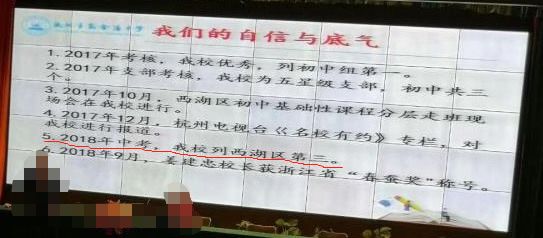 我们的自信与底气
1. 2017年考核，我校优秀，列初中组第一。
2. 2017年支部考核，我校为五星级支部，初中共三
个。
3. 2017年10月，西湖区初中基础性课程分层走班现
场会在我校进行。
4. 2017年12月，杭州电视台《名校有约》专栏，对
我校进行报道。
5. 2018年中考，我校列西湖区第三。
6. 2018年9月，姜建忠校长获浙江省“春蚕奖”称号。